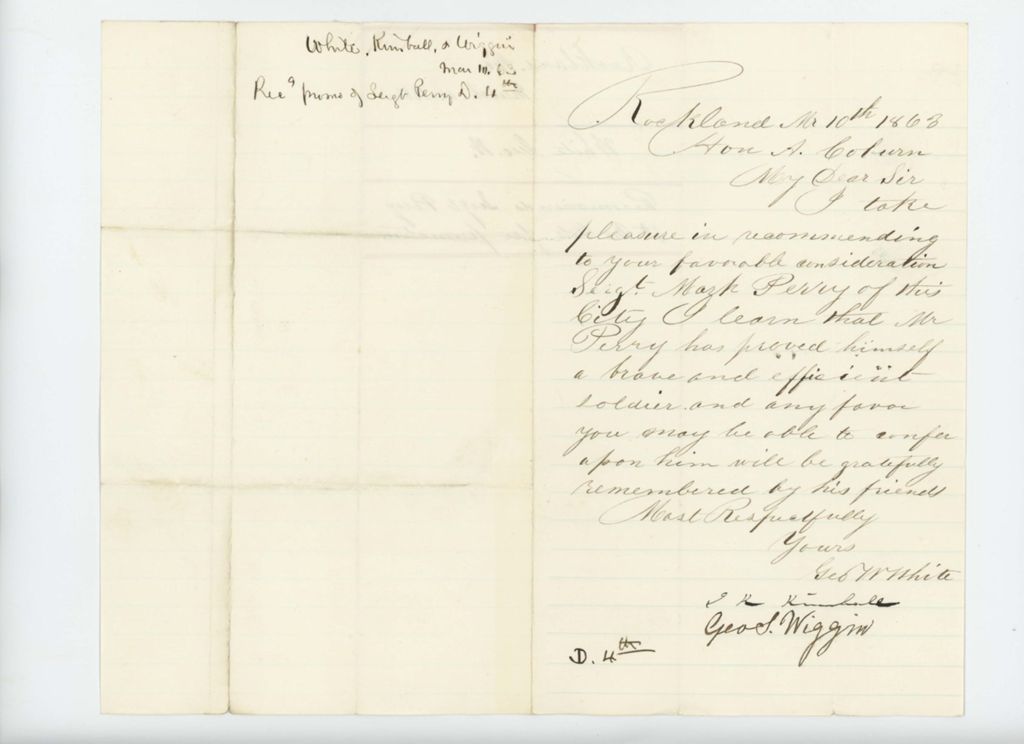 White, Kimball, & Wiggin
Mar 10. 63
Rec^d promo of Seigt Perry D. 4th
Rockland Me 10th 1863
Hon A. Coburn
My Dear Sir
I take
pleasure in recommending
to your favorable consideration
Seigt. Mark Perry of this
City I learn that Mr
Perry has proved himself
a brave and efficient
soldier and any favor
you may be able to confer
upon him will be gratefully
remembered by his friends
Most Respectfully
Yours
Geo W White
Kimball
Geo S. Wiggin
D. 4th